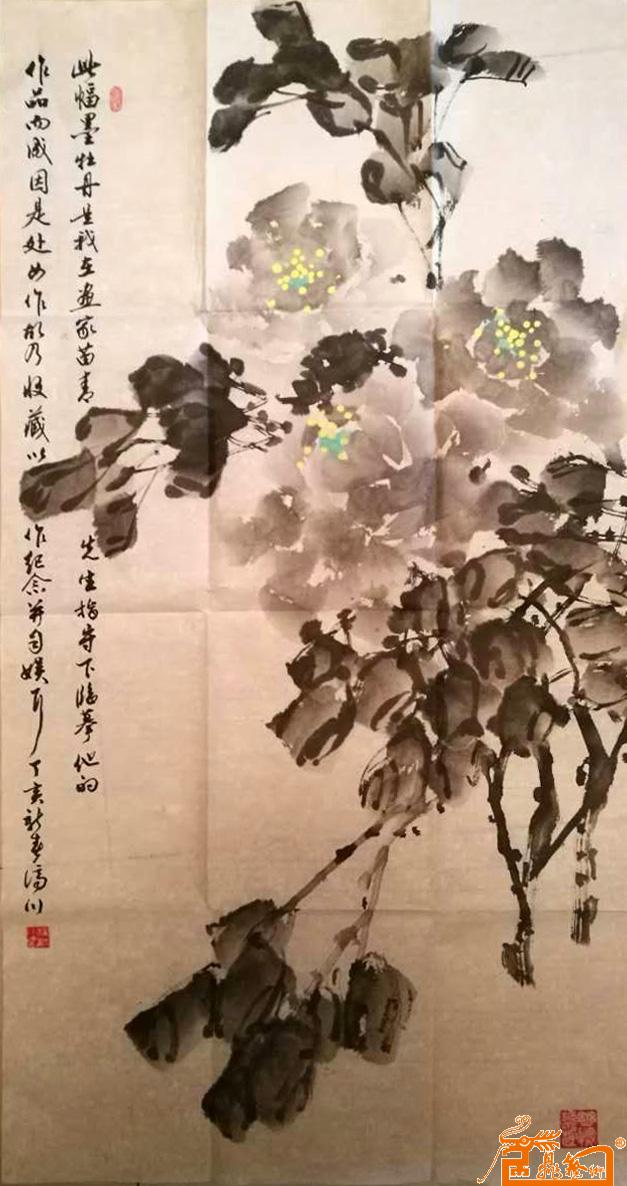 此幅墨牡丹是我在画家苗青先生指导下临摹他的
作品而成因是处女作故乃收藏以作纪念并自娱耳丁亥新春海川